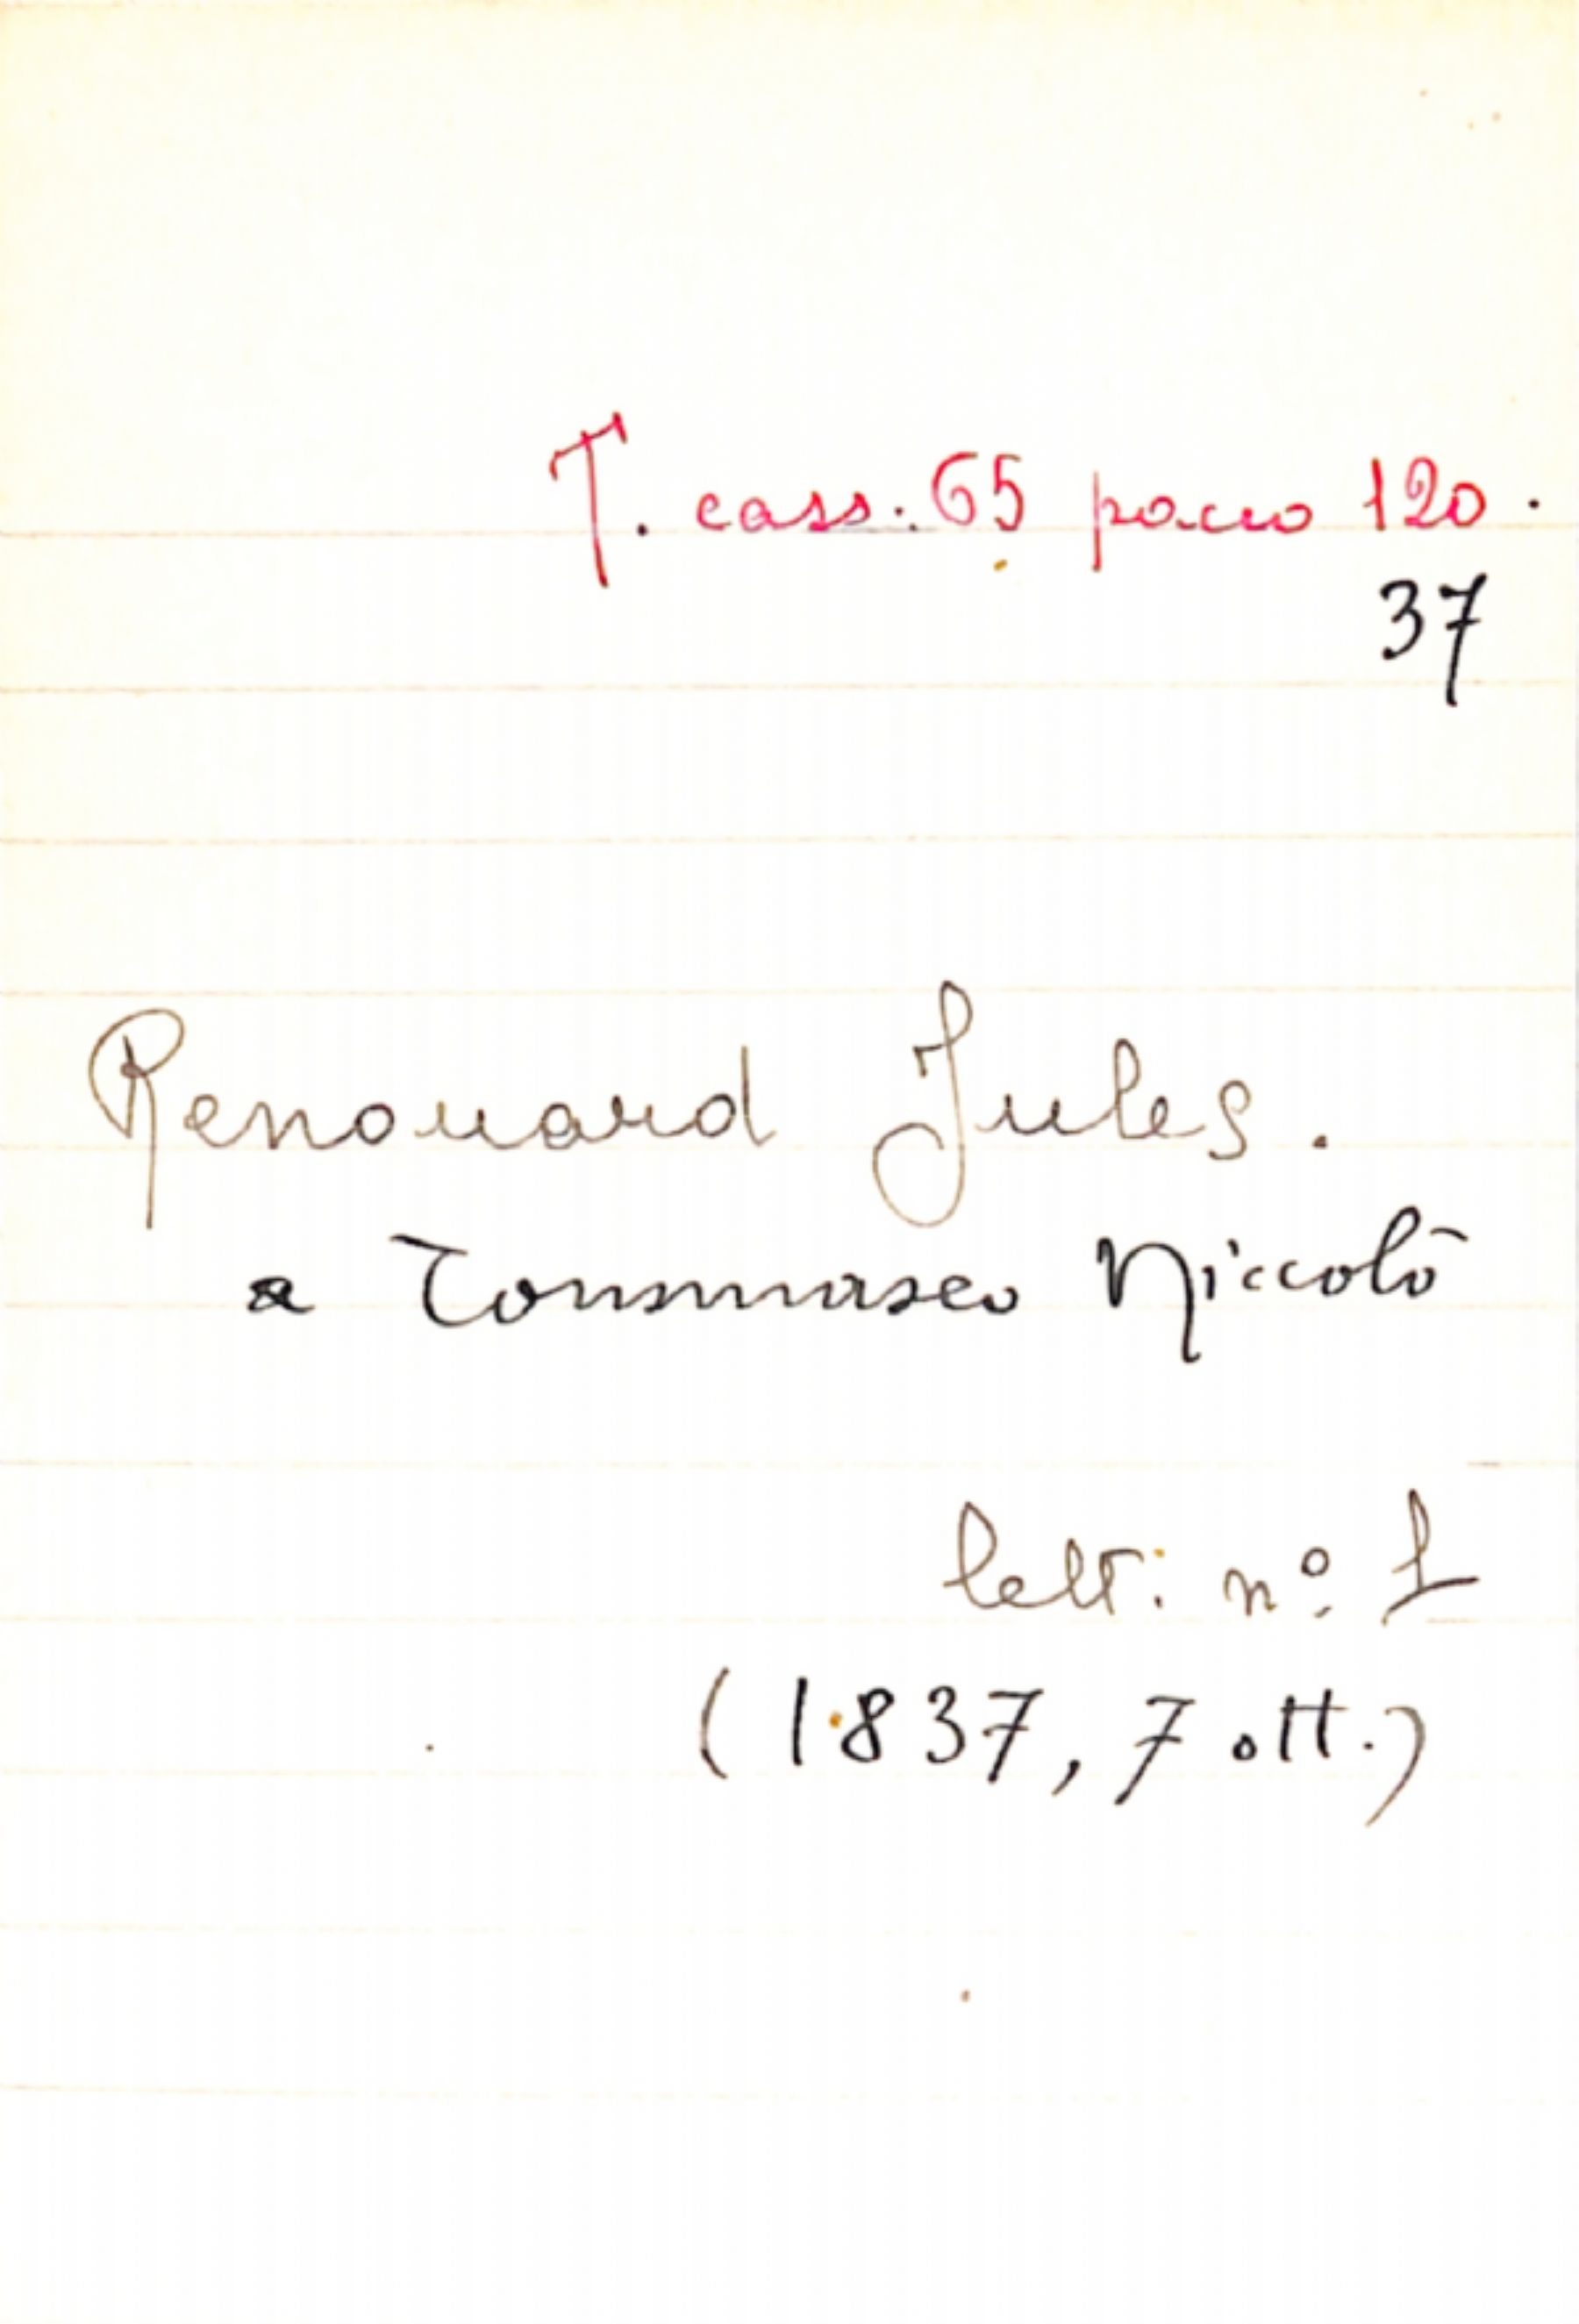 T. cass. 65 pacco 120.
37
Renouard Jules.
a Tommaseo Niccolò
lett: nº 1
(1837, 7 ott.)